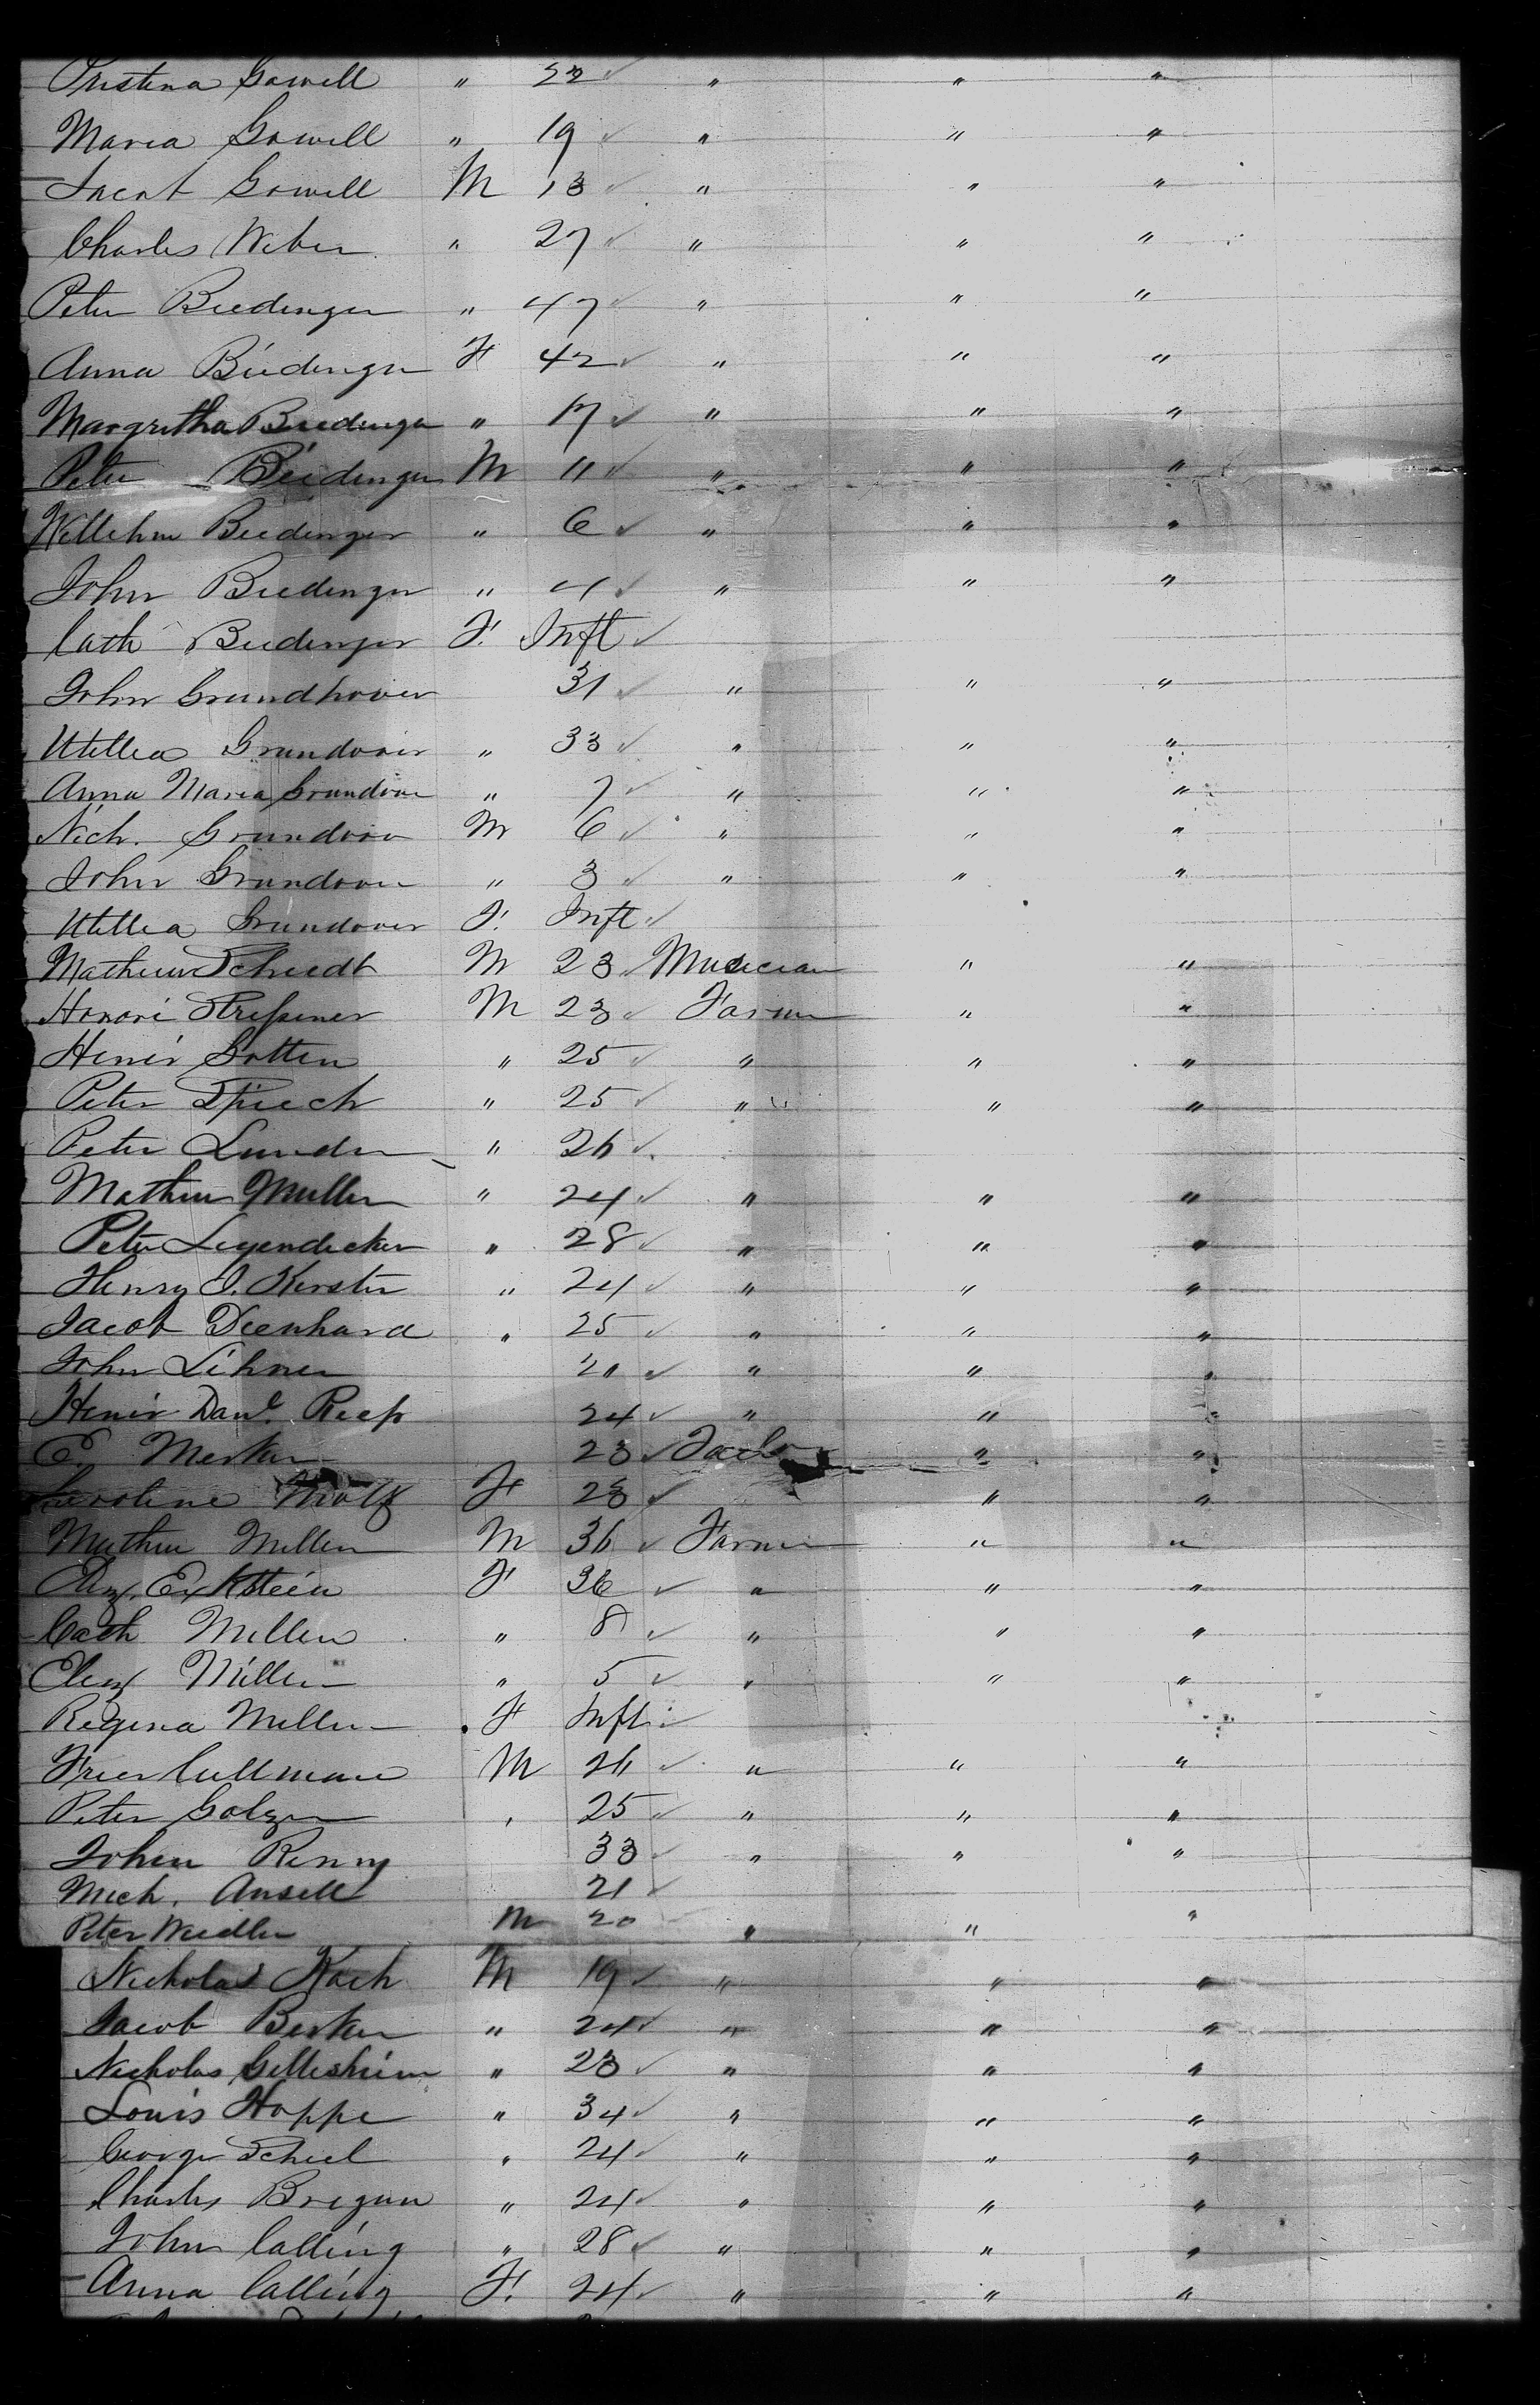 Cristina Gowell " 22 ✓ " " "
Maria Gowell " 19 ✓ " " "
Jacob Gowell M 13 ✓ " " "
Charles Weber " 27 ✓ " " "
Peter Biedinger " 47 ✓ " " "
Anna Biedinger F 42 ✓ " " "
Margretha Biedinger " 17 ✓ " " "
Peter Biedinger M 11 ✓ " " "
Willehm Biedinger " 6 ✓ " " "
John Biedinger " 4 ✓ " " "
Cath Biedinger F. Inft ✓
John Grundhover 31 ✓ " " "
Utillea Grundover " 33 ✓ " " "
Anna Maria Grundover " 7 ✓ " " "
Nich. Grundover M 6 ✓ " " "
John Grundover " 3 ✓ " " "
Utillea Grundover F. Inft ✓
Mathew Schiedt M 23 ✓ Musician " "
Honori M 23 ✓ Farmer " "
Henir Gotten " 25 ✓ " " "
Peter Spiech " 25 ✓ " " "
Peter Lunder " 26 ✓
Mathew Muller " 24 ✓ " " "
Peter Leyendecker " 28 ✓ " " "
Henry J. Kersten " 24 ✓ " " "
Jacob Dienhard " 25 ✓ " " "
John Lehner 20 ✓ " " "
Henir Danl. Reep 24 ✓ " " "
E. Merker 23 ✓ " "
Caroline Wolf F 28 ✓ " "
Mathew Miller M 36 ✓ Farmer " "
Eliz. Eckstein F 36 ✓ " " "
Cath Miller " 8 ✓ " " "
Eliz Miller " 5 ✓ " " "
Regina Miller F Inft ✓
Cullmann M 26 ✓ " " "
Peter Golzer " 25 ✓ " " "
John Renny 33 ✓ " " "
Mich. Ansell 21 ✓
Peter Weedler M 20 ✓ " " "
Nicholas Koch M 19 ✓ " " "
Jacob Becker " 24 ✓ " " "
Nicholas Gilleshiem " 23 ✓ " " "
Louis Hoppe " 34 ✓ " " "
George Scheel " 24 ✓ " " "
Charles Bregan " 24 ✓ " " "
John Calling " 28 ✓ " " "
Anna Calling F. 24 ✓ " " "